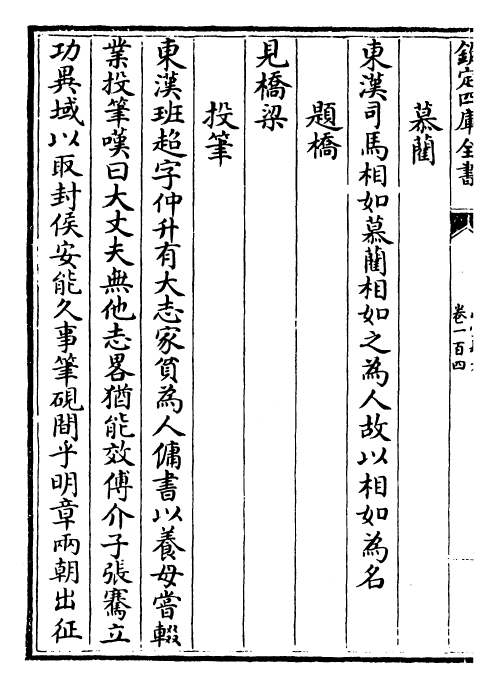 欽定四庫全書
卷一百四
慕藺
東漢司馬相如慕藺相如之為人故以相如為名
題橋
見橋梁
投筆
東漢班超字仲升有大志家貧為人傭書以養母嘗輟
業投筆嘆曰大丈夫無他志畧猶能效傅介子張騫立
功異域以取封侯安能久事筆硯間乎明章兩朝出征